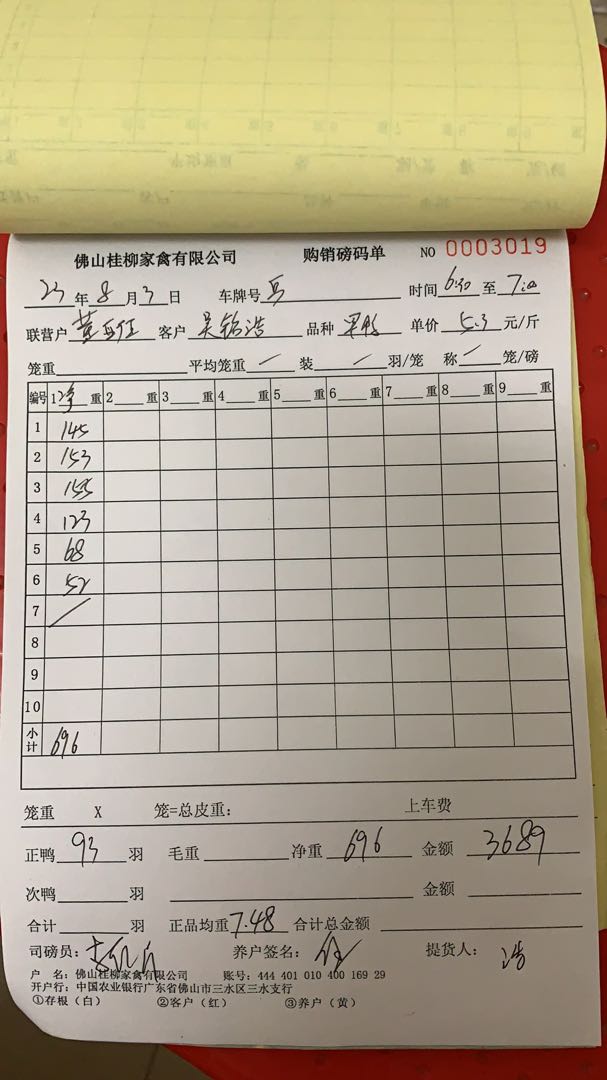 佛山桂柳家禽有限公司 购销磅码单 NO 0003019
23年8月3日 车牌号 时间6:30至7:00
联营户 黄 客户 吴铭浩 品种 单价5.3元/斤
笼重 平均笼重 / 装 / 羽/笼 称 / 笼/磅
编号 1 净 重 2 重 3 重 4 重 5 重 6 重 7 重 8 重 9 重
1 145
2 153
3 155
4 123
5 68
6 52
7 /
8
9
10
小计 696
笼重 X 笼=总皮重: 上车费
正鸭 93 羽 毛重 净重 696 金额 3689
次鸭 羽 金额
合计 羽 正品均重 7.48 合计总金额
司磅员: 养户签名: 提货人: 浩
户 名: 佛山桂柳家禽有限公司 账号: 444 401 010 400 169 29
开户行: 中国农业银行广东省佛山市三水区三水支行
①存根(白) ②客户(红) ③养户(黄)